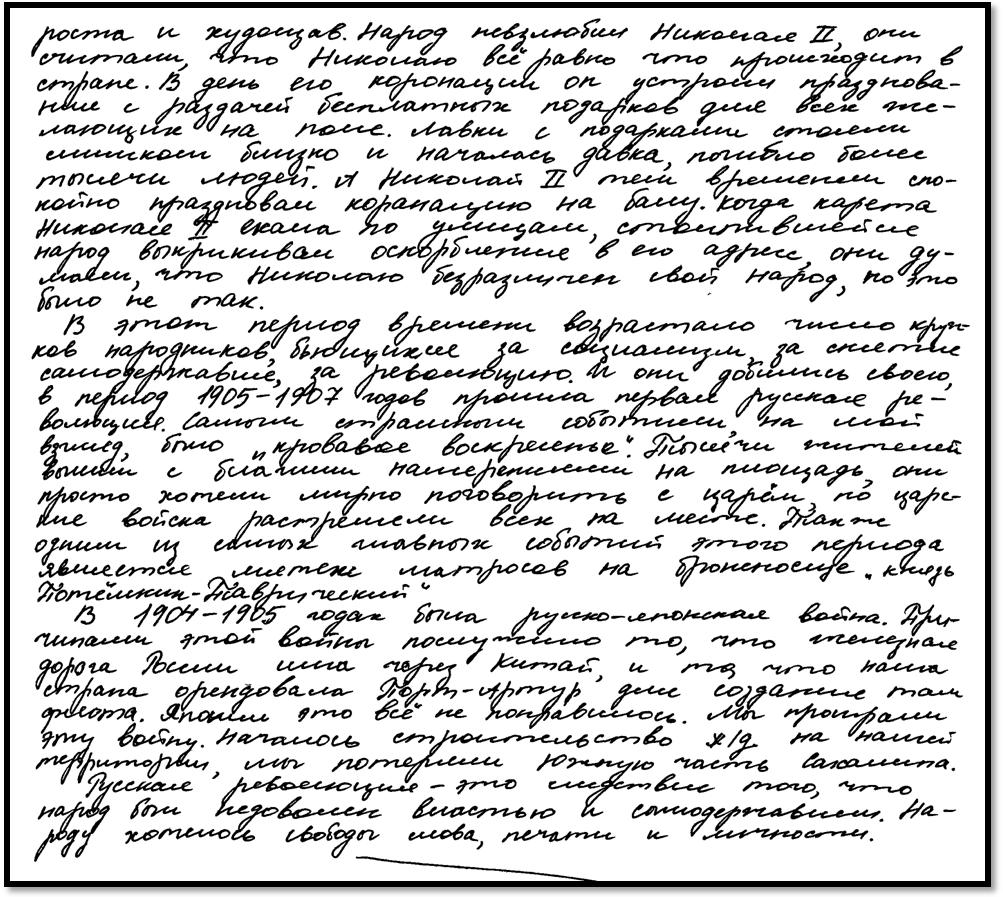 роста и худощав. Народ невзлюбил Николая II, они
считали, что Николаю всё равно что происходит в
стране. В день его коронации он устроил празднова-
ние с раздачей бесплатных подарков для всех же-
лающих на поле. Лавки с подарками стояли
слишком близко и началась давка, погибло более
тысячи людей. А Николай II тем временем спо-
койно праздновал коранацию на балу. Когда карета
Николая II ехала по улицам, столпившейся
народ выкрикивал оскорбление в его адрес, они ду-
мали, что Николаю безразличен свой народ, но это
было не так.
В этот период времени возрастало число круж-
ков народников, бьющихся за социализм, за снятие
самодержавие, за революцию. И они добились своего,
в период 1905-1907 годов прошла первая русская ре-
волюция. Самым страшным событием, на мой
взгляд, было „кровавое воскресенье". Тысячи жителей
вышли с благими намерениями на площадь, они
просто хотели мирно поговорить с царём, но царс-
кие войска растреляли всех на месте. Также
одним из самых главных событий этого периода
является мятеж матросов на броненосце „князь
Потёмкин-Таврический"
В 1904-1905 годах была русско-японская война. При-
чинами этой войны послужило то, что железная
дорога России шла через Китай, и то, что наша
страна орендовала Порт-Артур, для создание там
флота. Японии это всё не понравилось. Мы проиграли
эту войну. Началось строительство ж/д на нашей
территории, мы потеряли Южную часть Сахалина.
Русская революция - это следствие того, что
народ был недоволен властью и самодержавием. На-
роду хотелось свободы слова, печати и личности.